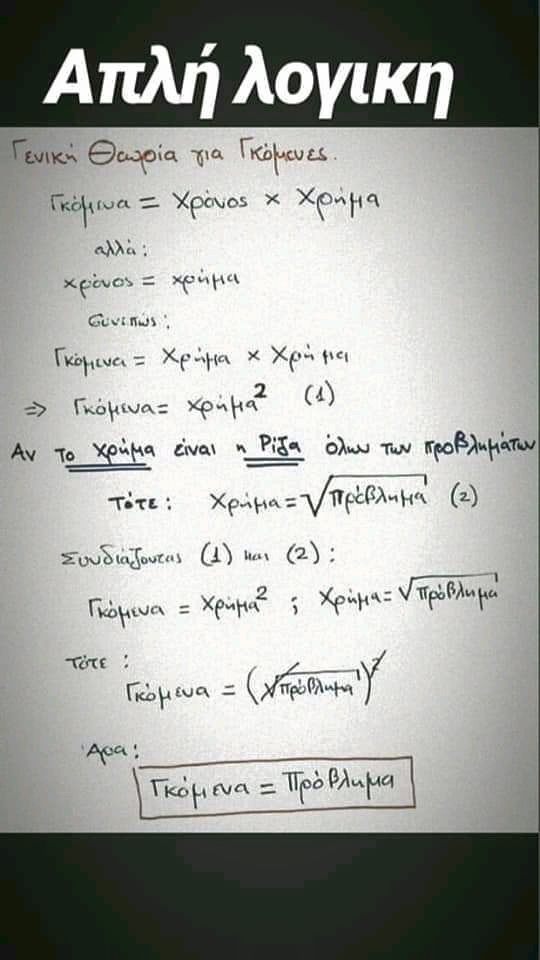 Απλή λογικη
Γενική Θεωρία για Γκόμενες.
Γκόμενα = Χρόνος × Χρήμα
αλλά:
χρόνος = χρήμα
Συνεπώς:
Γκόμενα = Χρήμα × Χρήμα
=> Γκόμενα = χρήμα² (1)
Αν το χρήμα είναι η Ρίζα όλων των προβλημάτων
τότε: Χρήμα = √πρόβλημα (2)
Συνδιάζοντας (1) και (2):
Γκόμενα = Χρήμα² ; Χρήμα = √πρόβλημα
τότε:
Γκόμενα = (√πρόβλημα)²
Άρα:
Γκόμενα = Πρόβλημα